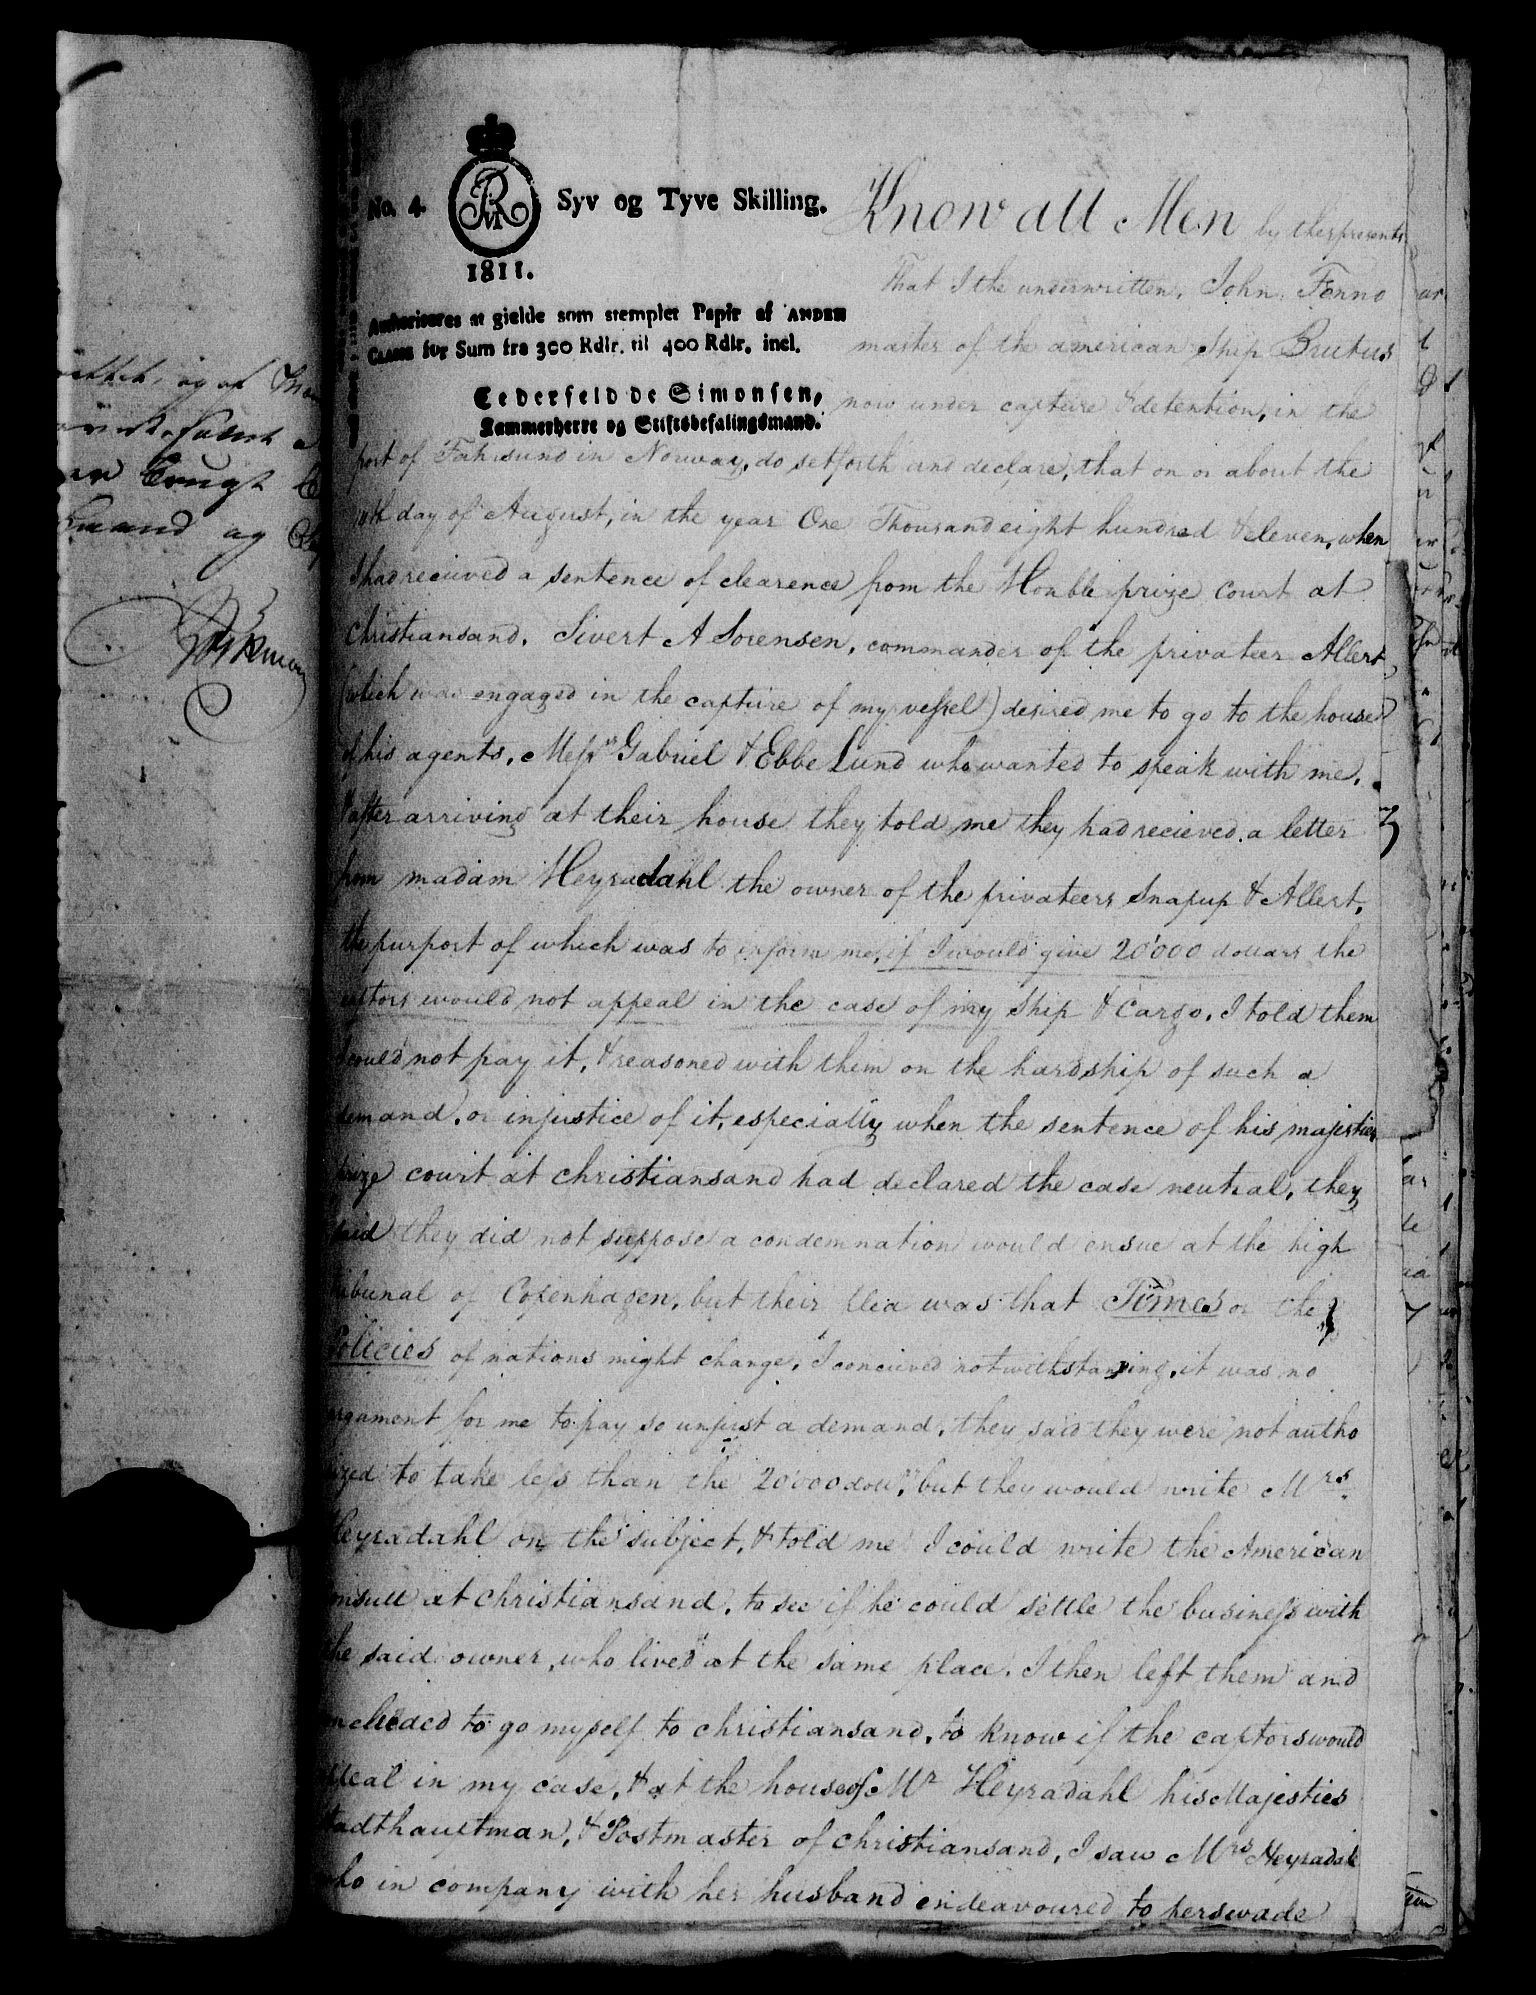 No. 4. Syv og Tyve Skilling.
1811.
Authoriseres at gielde som stemplet Papir af ANDEN
CLASSE for Sum fra 300 Rdlr. til 400 Rdlr. incl.
Cederfeld de Simonsen,
Kammerherre og Stiftsbefalingsmand.
Know all Men by thes presents
That I the underwritten, John Fenno
master of the american Ship Brutus
now under capture & detention, in the
port of Fahrsund in Norway, do setforth and declare, that on or about the
day of August, in the year One Thousand eight hundred & eleven, when
I had recieved a sentence of clearence from the Honble prize court at
Christiansand. Sivert A Sorensen, commander of the privateer Allert,
(which was engaged in the capture of my vessel) desired me to go to the house
of his agents, Messrs Gabriel & Ebbe Lund who wanted to speak with me.
& after arriving at their house they told me they had recieved a letter
from madam Heyradahl the owner of the privateers Snapup & Allert,
the purport of which was to inform me, if I would give 20'000 dollars the
captors would not appeal in the case of my Ship & Cargo. I told them
I could not pay it, & reasoned with them on the hardship of such a
demand, or injustice of it, especially when the sentence of his majesties
prize court at christiansand had declared the case neutral, they
said they did not suppose a condemnation would ensue at the high
tribunal of Copenhagen, but their plea was that Times or the
Policies of nations might change, I concieved notwithstanding, it was no
argament for me to pay so unjust a demand, they said they were not autho
rized to take less than the 20'000 dollrs but they would write Mrs
Heyradahl on the subject, & told me I could write the American
Consull at christiansand, to see if he could settle the business with
the said owner, who lived at the same place. I then left them and
concluded to go myself to christiansand, to know if the captors would
appeal in my case, & at the house of Mr Heyradahl his Majesties
Stadthauptman, & Postmaster of christiansand, I saw Mrs Heyradahl
who in company with her husband endeavoured to perswade